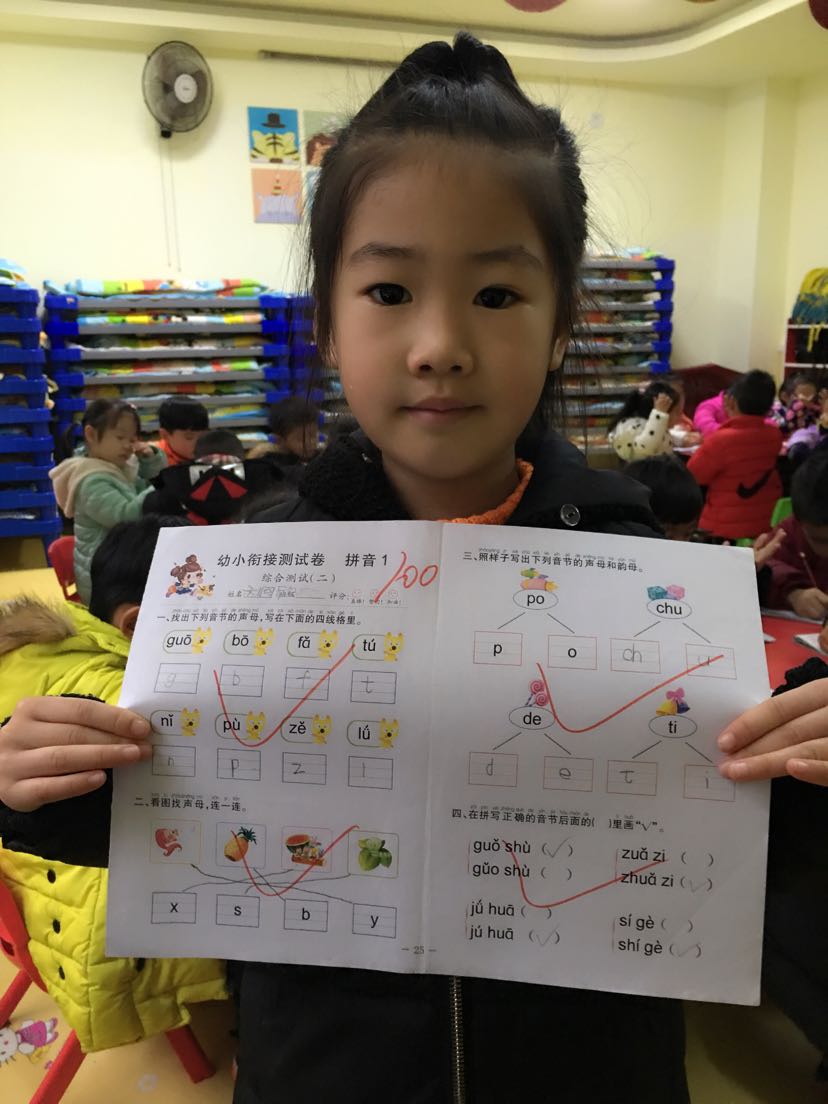 幼小衔接测试卷 拼音1
100
综合测试(二)
姓名 班级 评分:
一、找出下列音节的声母,写在下面的四线格里。
guō bō fǎ tú
g b f t
nǐ pù zě lǘ
n p z l
二、看图找声母,连一连。
x s b y
- 25 -
三、照样子写出下列音节的声母和韵母。
po chu
p o ch u
de ti
d e t i
四、在拼写正确的音节后面的( )里画“√”。
guǒ shù (√) zuǎ zi ( )
gǔo shù ( ) zhuǎ zi (√)
jǘ huā ( ) sí gè ( )
jú huā (√) shí gè (√)